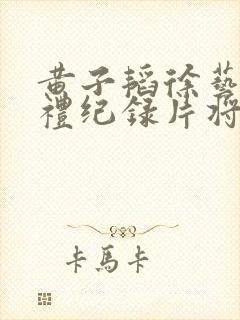 黄子韬徐藝
禮纪録片将
卡馬卡